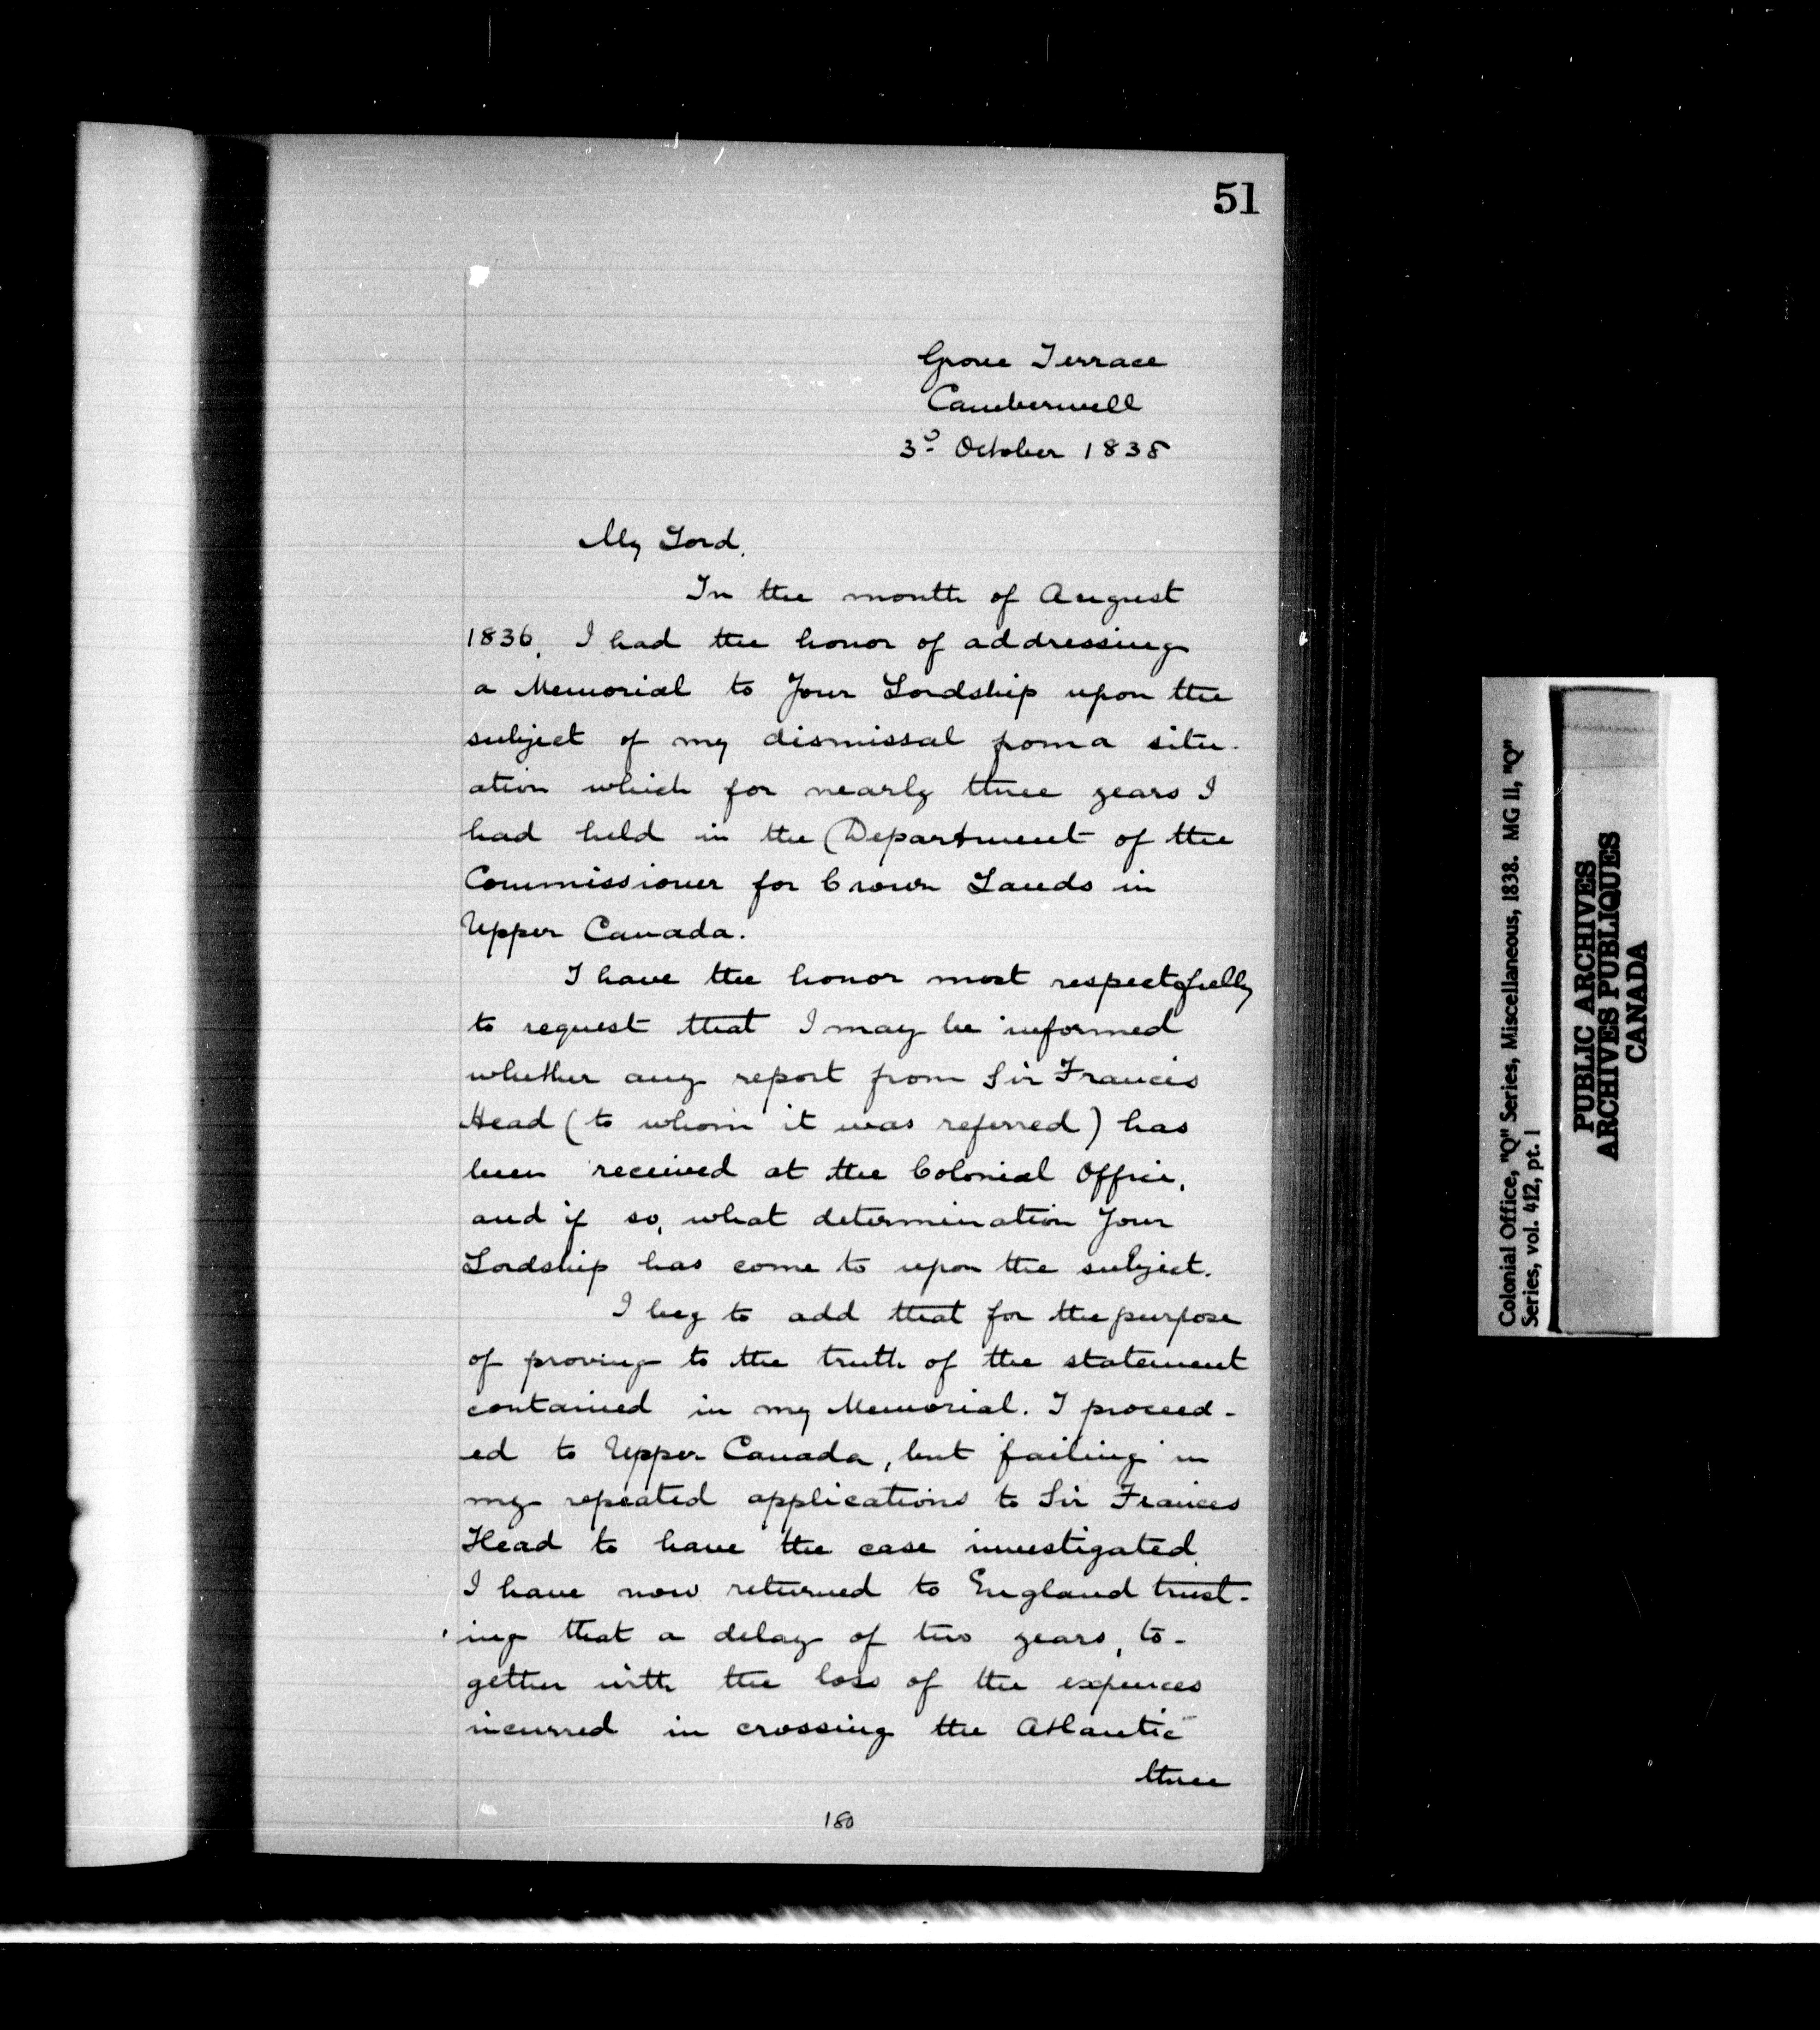 51
Grove Terrace
Camberwell
3d October 1838
My Lord.
In the month of August
1836, I had the honor of addressing
a Memorial to Your Lordship upon the
subject of my dismissal from a situ-
ation which for nearly three years I
had held in the Department of the
Commissioner for Crown Lands in
Upper Canada.
I have the honor most respectfully
to request that I may be informed
whether any report from Sir Francis
Head (to whom it was referred) has
been received at the Colonial Office,
and if so, what determination Your
Lordship has come to upon the subject.
I beg to add that for the purpose
of proving to the truth of the statement
contained in my Memorial. I proceed-
ed to Upper Canada, but failing in
my repeated applications to Sir Frances
Head to have the case investigated.
I have now returned to England trust-
ing that a delay of two years, to-
gether with the loss of the expences
incurred in crossing the Atlantic
three
180
Colonial Office, "Q" Series, Miscellaneous, 1838. MG 11, "Q"
Series, vol. 412, pt. 1
PUBLIC ARCHIVES
ARCHIVES PUBLIQUES
CANADA